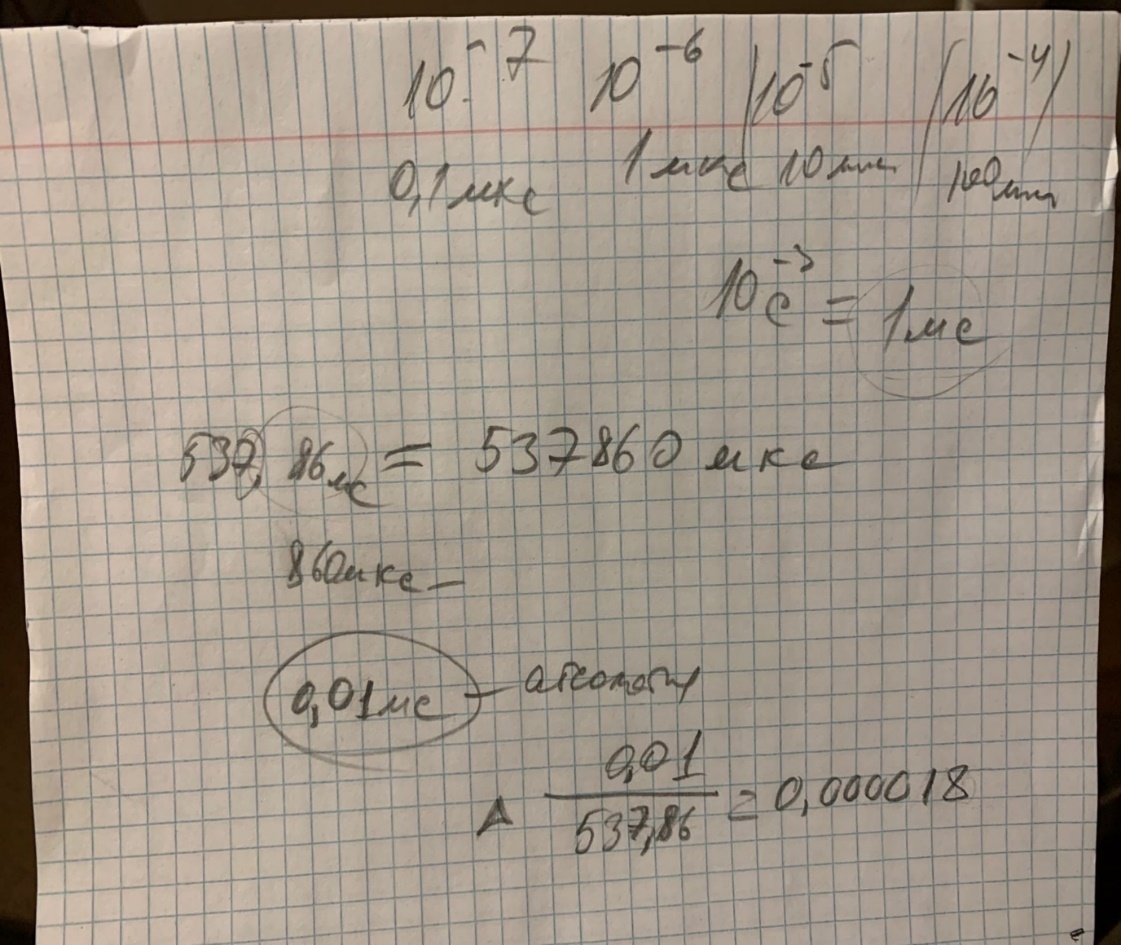 10⁻⁷ 10⁻⁶ 10⁻⁵ (10⁻⁴)
0,1мкс 1мкс 10мкс 100мкс
10⁻³с = 1мс
537,86мс = 537860 мкс
860мкс –
0,01мс –
0,01
537,86 = 0,000018